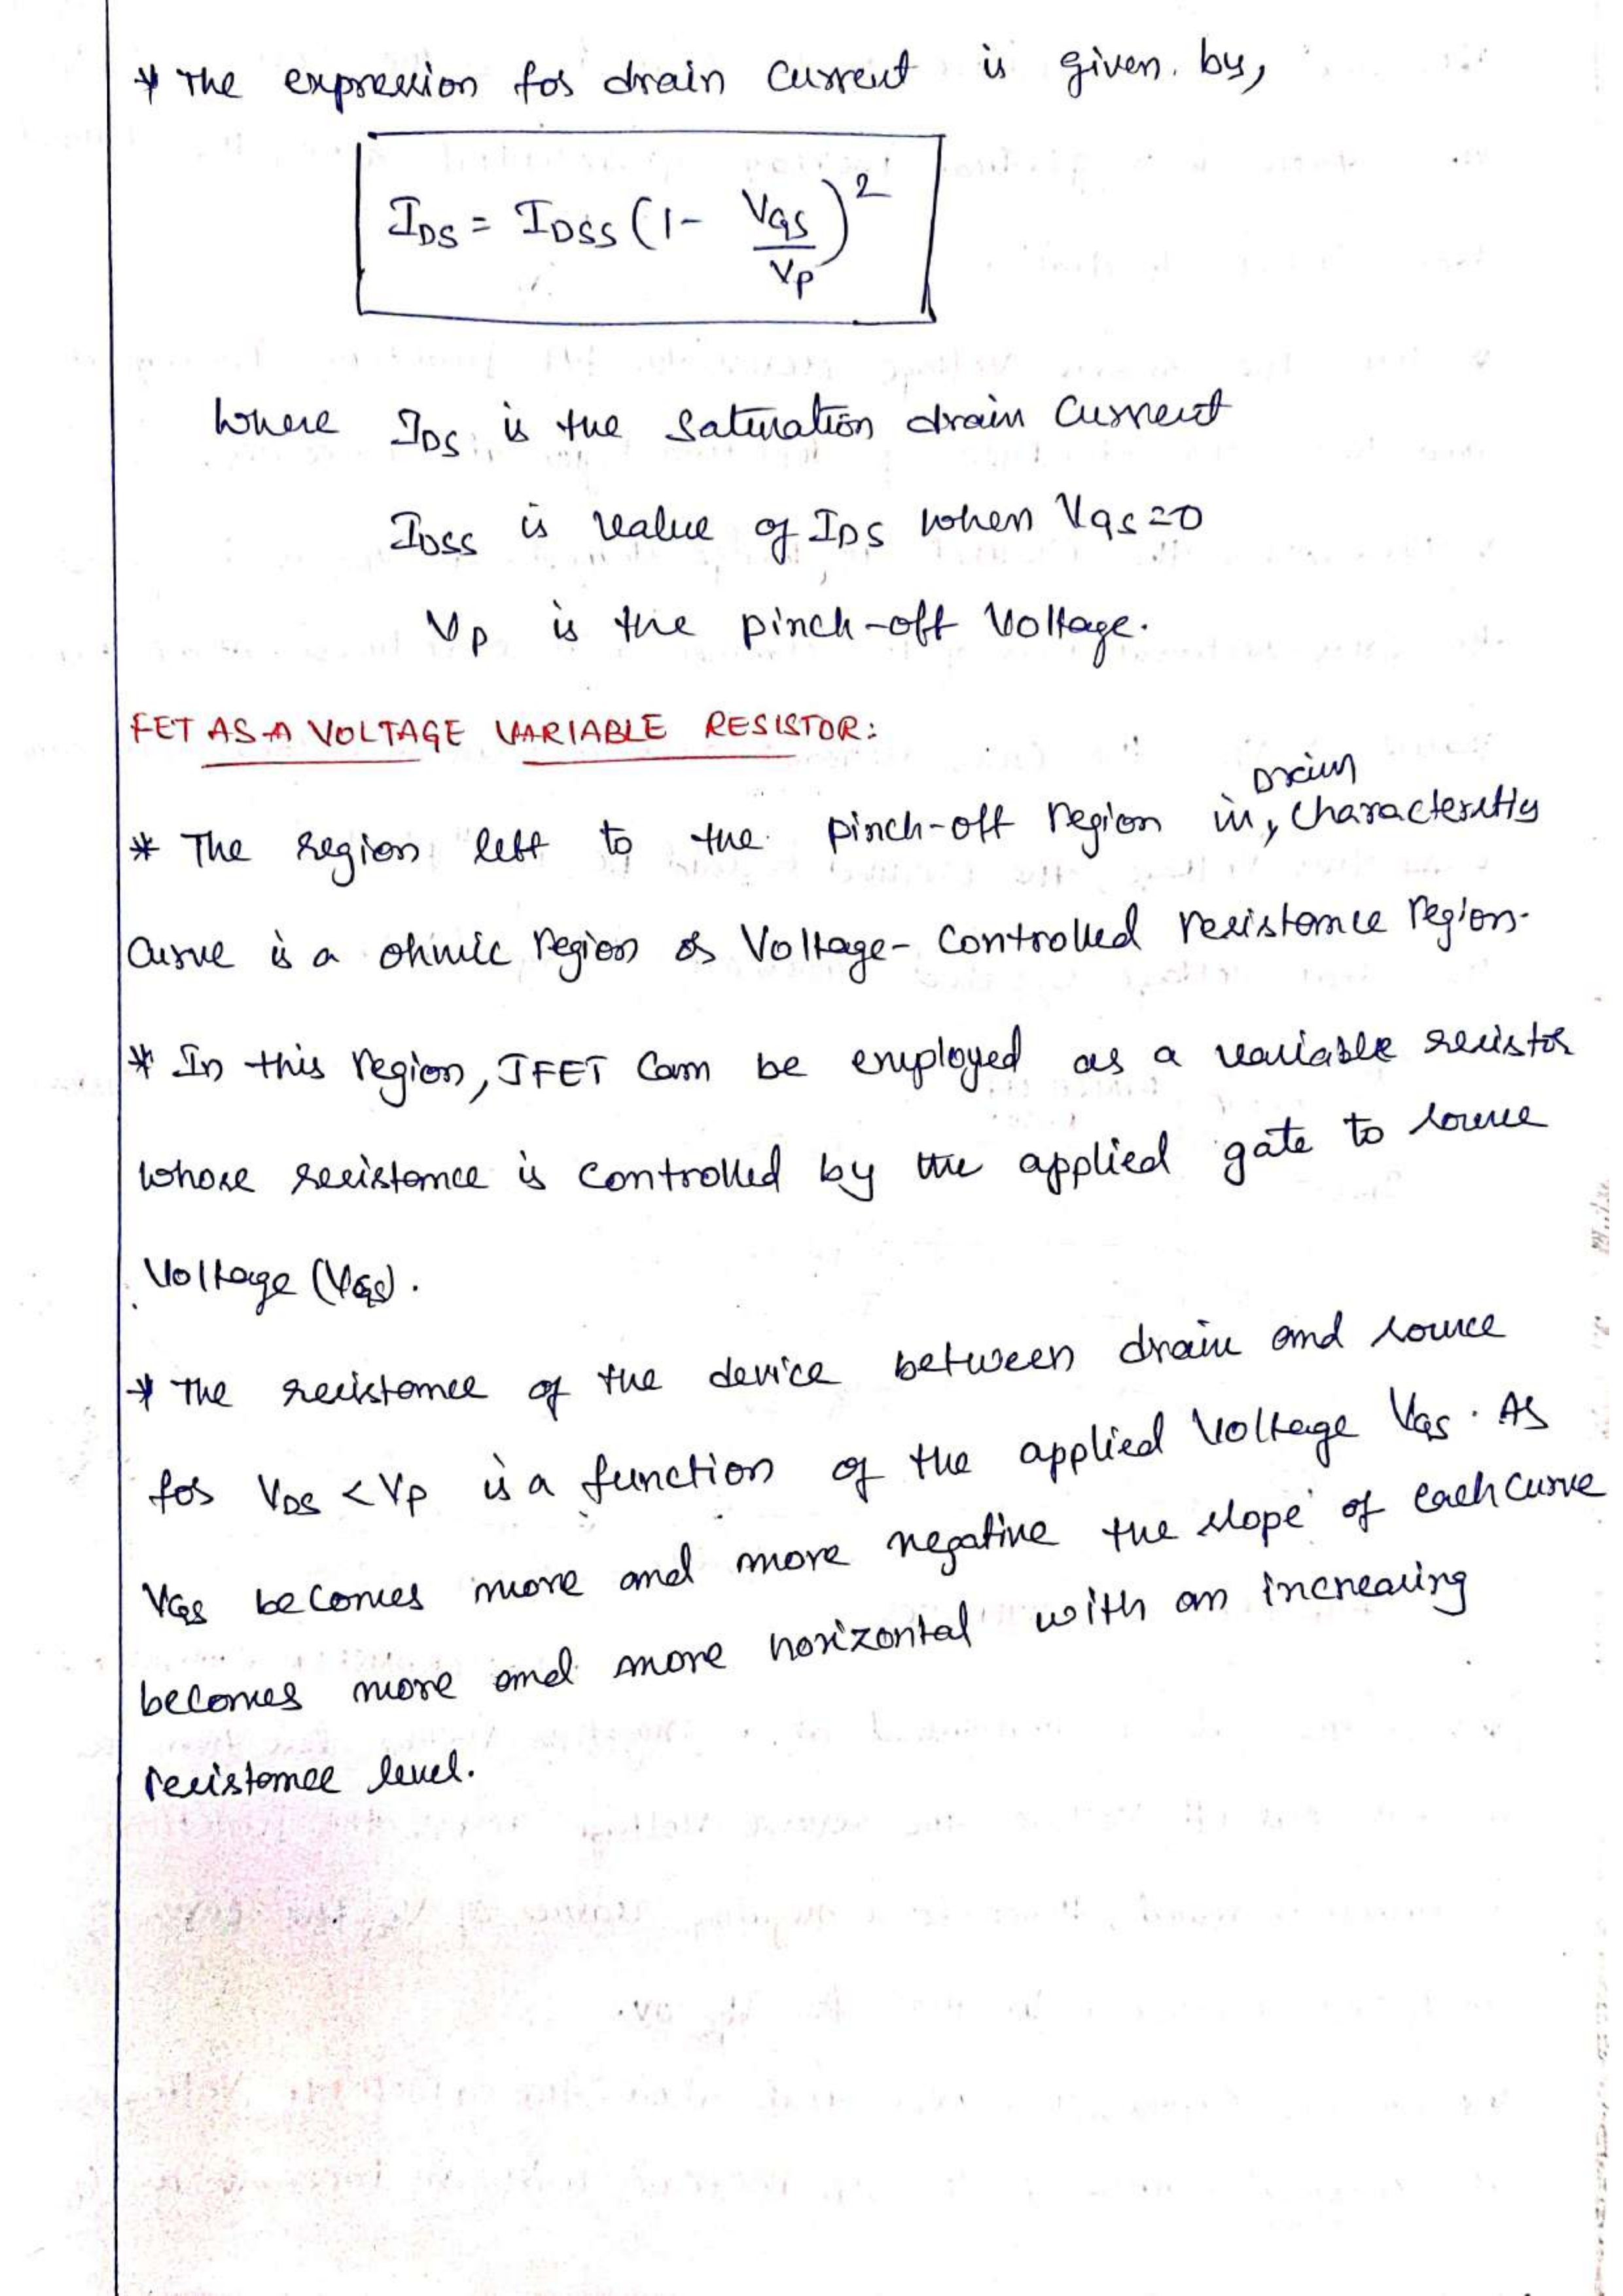 * The expression for drain current is given by,
I_DS = I_DSS (1 - V_GS / V_P)^2
Where I_DS is the saturation drain current
I_DSS is value of I_DS when V_GS = 0
V_P is the pinch-off Voltage.
FET AS A VOLTAGE VARIABLE RESISTOR:
* The region left to the pinch-off region in, Drain characteristics
curve is a ohmic region or Voltage-controlled resistance region.
* In this region, JFET can be employed as a variable resistor
whose resistance is controlled by the applied gate to source
Voltage (V_GS).
* The resistance of the device between drain and source
for V_DS < V_P is a function of the applied Voltage V_GS. As
V_GS becomes more and more negative the slope of each curve
becomes more and more horizontal with an increasing
resistance level.